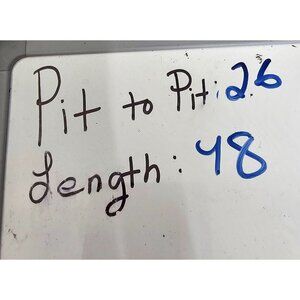 Pit to Pit: 26
Length: 48